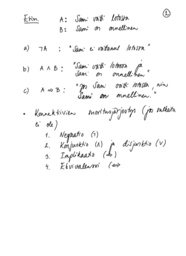 Esim. A: Sami voitti lotossa
B: Sami on onnellinen
a) ¬A : "Sami ei voittanut lotossa"
b) A ∧ B : "Sami voitti lotossa ja
Sami on onnellinen."
c) A ⇒ B : "Jos Sami voitti lotossa, niin
Sami on onnellinen."
• Konnektiivien (jos sulkeita
ei ole)
1. Negaatio (¬)
2. Konjunktio (∧) ja disjunktio (∨)
3. Implikaatio (⇒)
4. Ekvivalenssi (⇔